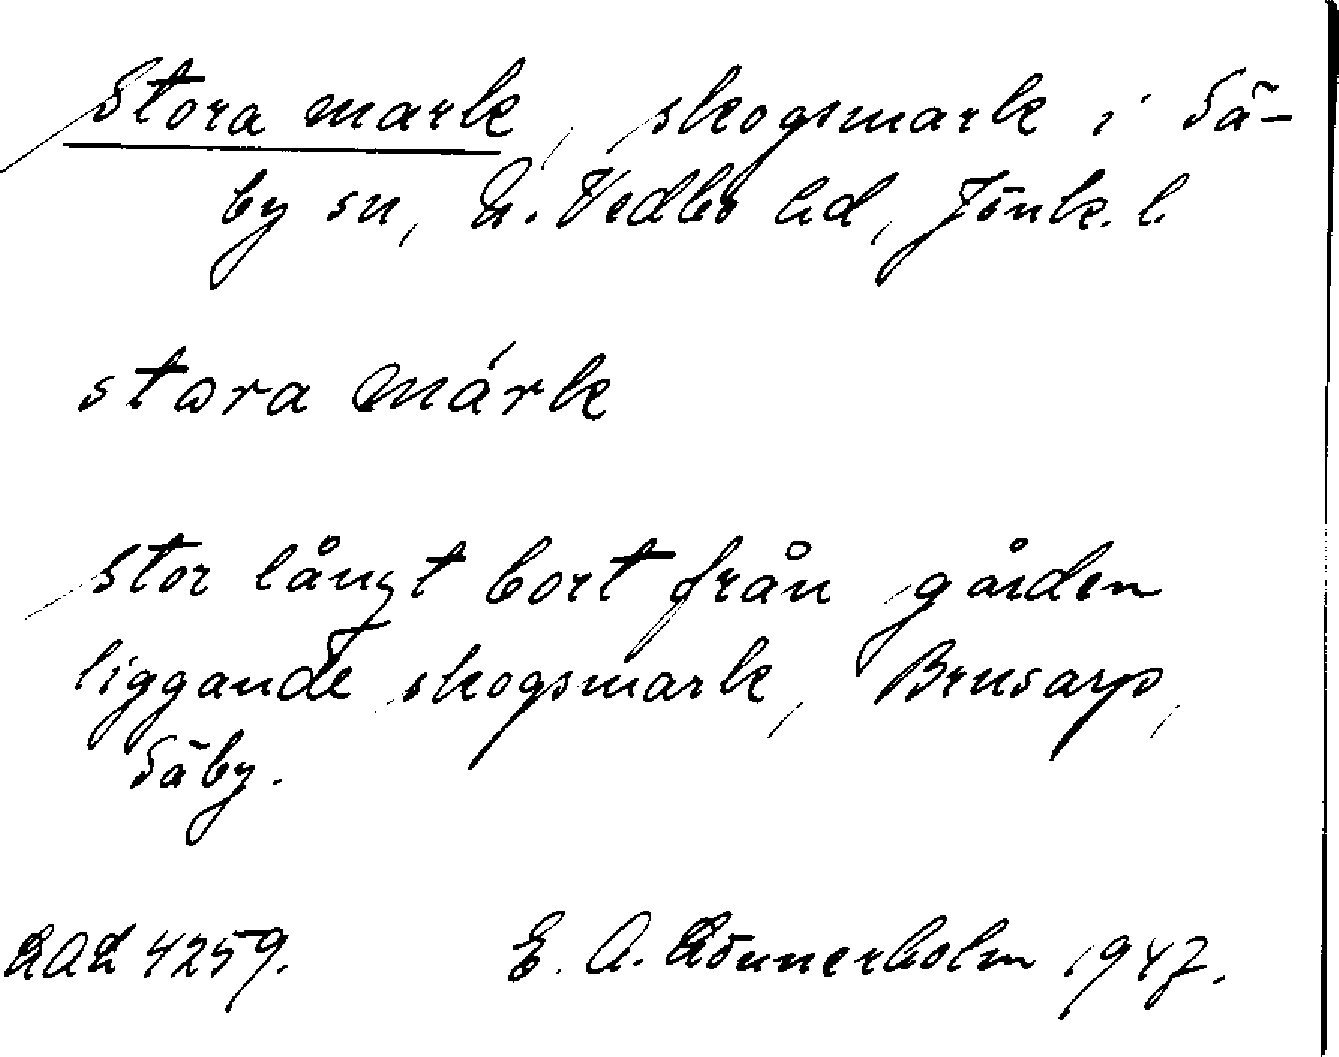 Stora mark, skogsmark i Sä-
by sn, N. Vedbo hd, Jönk. l.
stora márk
Stor långt bort från gården
liggande skogsmark, Brusarp,
Säby.
LAL 4259. E. A. Lönnerholm 1947.